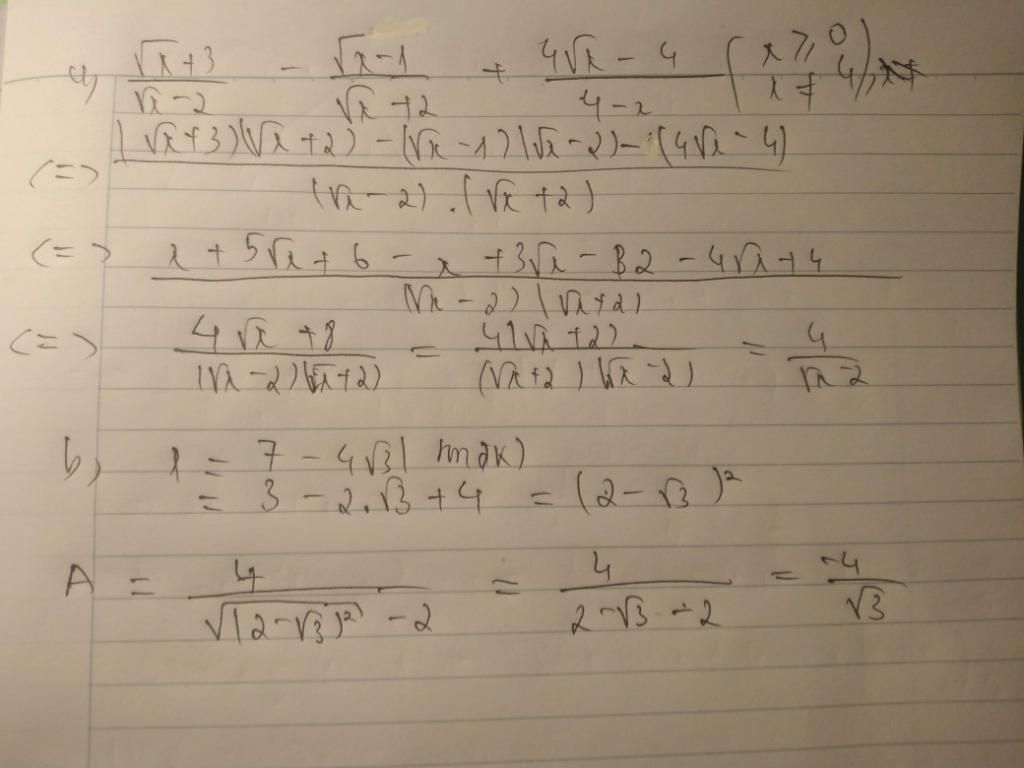 a, (√x+3)/(√x-2) - (√x-1)/(√x+2) + (4√x-4)/(4-x) (x ≥ 0, x ≠ 4),
<=> ((√x+3)(√x+2) - (√x-1)(√x-2) - (4√x-4))/((√x-2).(√x+2))
<=> (x+5√x+6-x+3√x-2-4√x+4)/((√x-2)(√x+2))
<=> (4√x+8)/((√x-2)(√x+2)) = (4(√x+2))/((√x+2)(√x-2)) = 4/(√x-2)
b, x = 7-4√3( tmđk)
= 3-2.√3+4 = (2-√3)²
A = 4/(√((2-√3)²)-2) = 4/(2-√3-2) = -4/√3